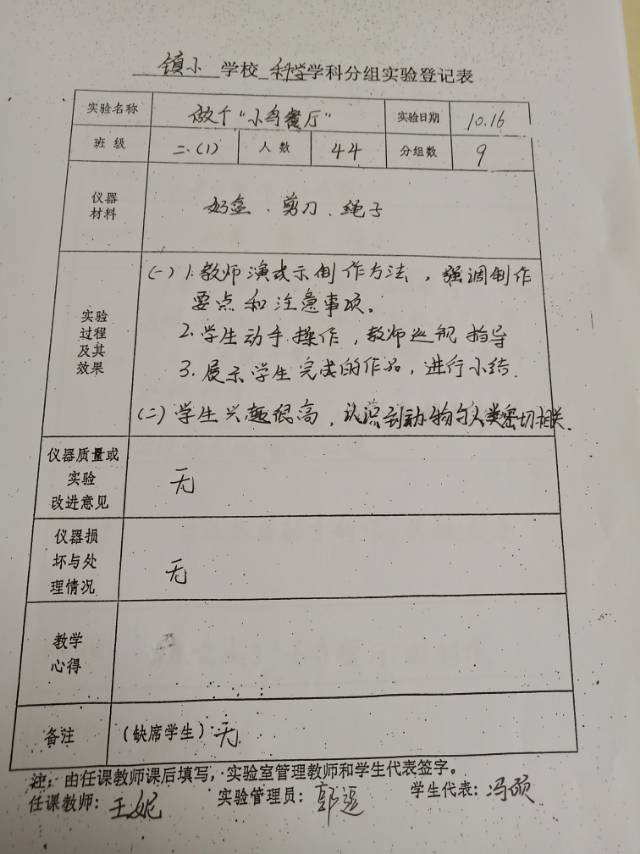 镇小 学校 科学 学科分组实验登记表
实验名称 做个“小鸟餐厅” 实验日期 10.16
班 级 二.(1) 人 数 44 分组数 9
仪器
材料
奶盒.剪刀.绳子
实验
过程
及其
效果
(一) 1.教师演示制作方法，强调制作
要点和注意事项。
2.学生动手操作，教师巡视指导
3.展示学生完成的作品，进行小结.
(二) 学生兴趣很高，认识到动物与人类密切相关.
仪器质量或
实验
改进意见
无
仪器损
坏与处
理情况
无
教学
心得
备注 (缺席学生) 无
注：由任课教师课后填写，实验室管理教师和学生代表签字。
任课教师: 王妮 实验管理员: 郭 学生代表: 冯硕